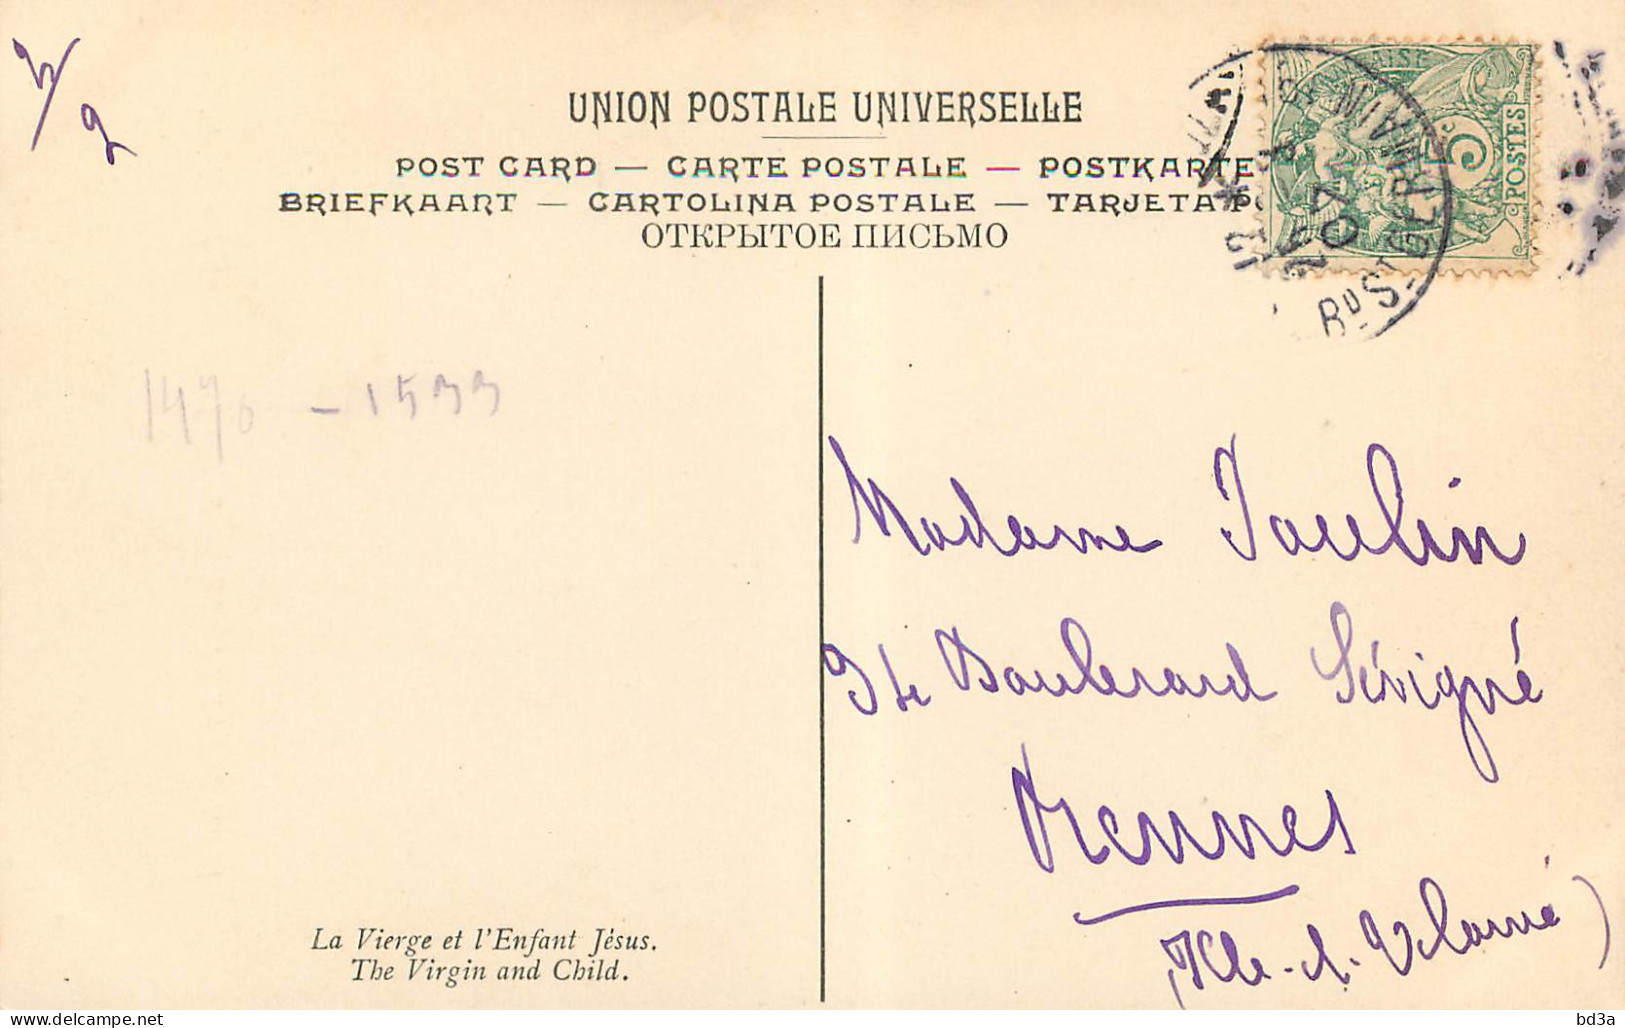 UNION POSTALE UNIVERSELLE
POST CARD — CARTE POSTALE — POSTKARTE
BRIEFKAART — CARTOLINA POSTALE — TARJETA PO
ОТКРЫТОЕ ПИСЬМО
5
POSTES
07
BD ST GERMAIN
1470 - 1533
Madame Joulin
Boulevard Sévigné
Rennes
(Ille-et-Vilaine)
La Vierge et l'Enfant Jésus.
The Virgin and Child.
bd3a